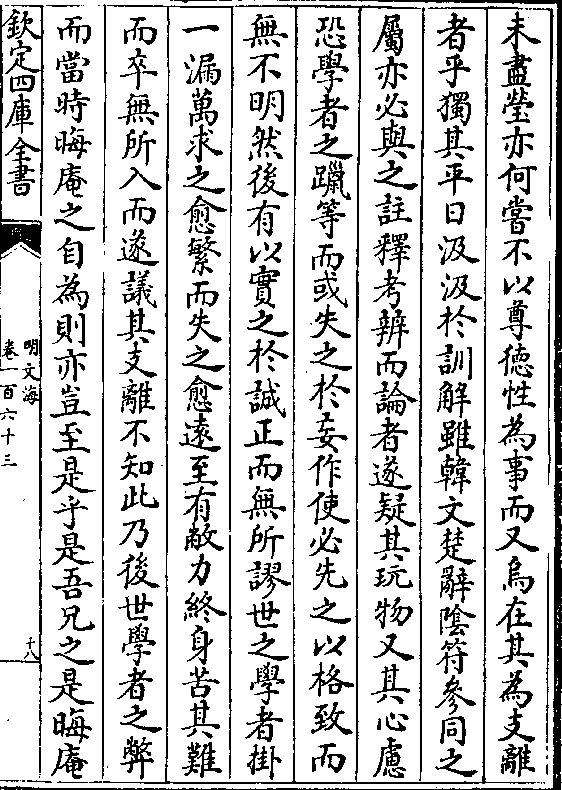 未盡瑩亦何嘗不以尊德性為事而又烏在其為支離
者乎獨其平日汲汲於訓解雖韓文楚辭陰符參同之
屬亦必與之註釋考辨而論者遂疑其玩物又其心慮
恐學者之躐等而或失之於妄作使必先之以格致而
無不明然後有以實之於誠正而無所謬世之學者掛
一漏萬求之愈繁而失之愈遠至有敝力終身苦其難
而卒無所入而遂議其支離不知此乃後世學者之弊
而當時晦庵之自為則亦豈至是乎是吾兄之是晦庵
欽定四庫全書
明文海
卷一百六十三
十八